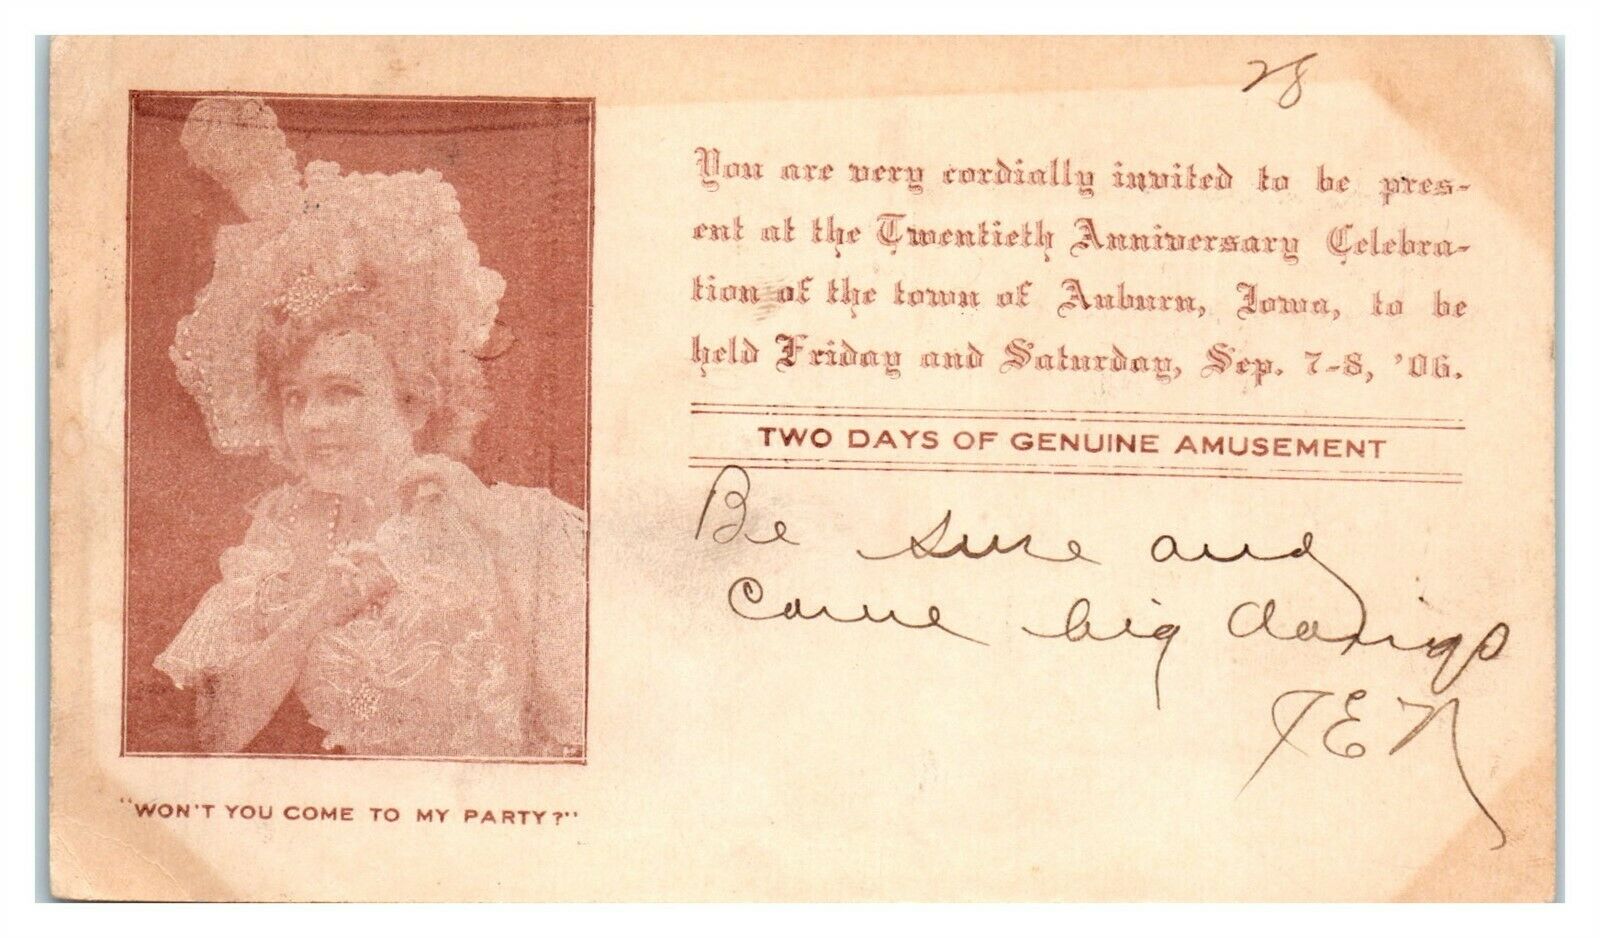 28
You are very cordially invited to be pres-
ent at the Twentieth Anniversary Celebra-
tion of the town of Auburn, Iowa, to be
held Friday and Saturday, Sep. 7-8, '06.
TWO DAYS OF GENUINE AMUSEMENT
Be sure and
come big doings
"WON'T YOU COME TO MY PARTY?"